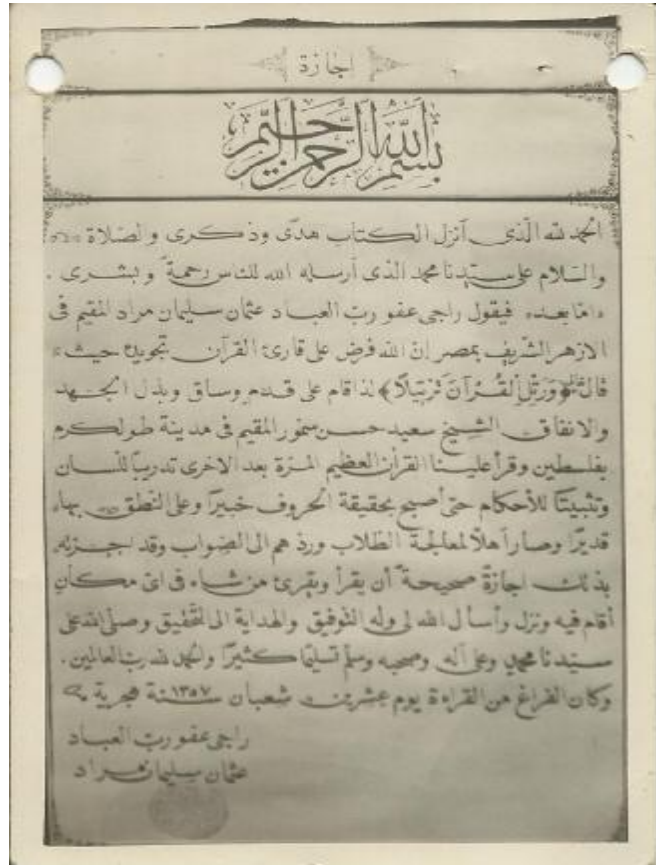 اجازة
بسم الله الرحمن الرحيم
الحمد لله الذى أنزل الكتاب هدًى وذكرى والصلاة
والسلام على سيدنا محمد الذى أرسله الله للناس رحمةً وبشرى .
امّا بعد فيقول راجى عفو ربّ العباد عثمان سليمان مراد المقيم فى
الازهر الشريف بمصر إنّ الله فرض على قارئ القرآن تجويده حيث
قال ﴿وَرَتِّلِ الْقُرْآنَ تَرْتِيلًا﴾ لذا قام على قدم وساق وبذل الجهد
والانفاق الشيخ سعيد حسن سمور المقيم فى مدينة طولكرم
بفلسطين وقرأ علينا القرآن العظيم المرّة بعد الاخرى تدريبًا للّسان
وتثبيتًا للأحكام حتى أصبح بحقيقة الحروف خبيرًا وعلى النطق بها
قديرًا وصار أهلًا لمعالجة الطلاب وردّهم الى الصواب وقد اجزته
بذلك اجازةً صحيحةً أن يقرأ ويقرئ من شاء فى اىّ مكان
أقام فيه ونزل وأسأل الله لى وله التوفيق والهداية الى التحقيق وصلى الله على
سيّدنا محمدٍ وعلى آله وصحبه وسلم تسليمًا كثيرًا والحمد لله ربّ العالمين .
وكان الفراغ من القراءة يوم عشرين شعبان سنة ١٣٥٧ هجرية
راجى عفو ربّ العباد
عثمان سليمان مراد